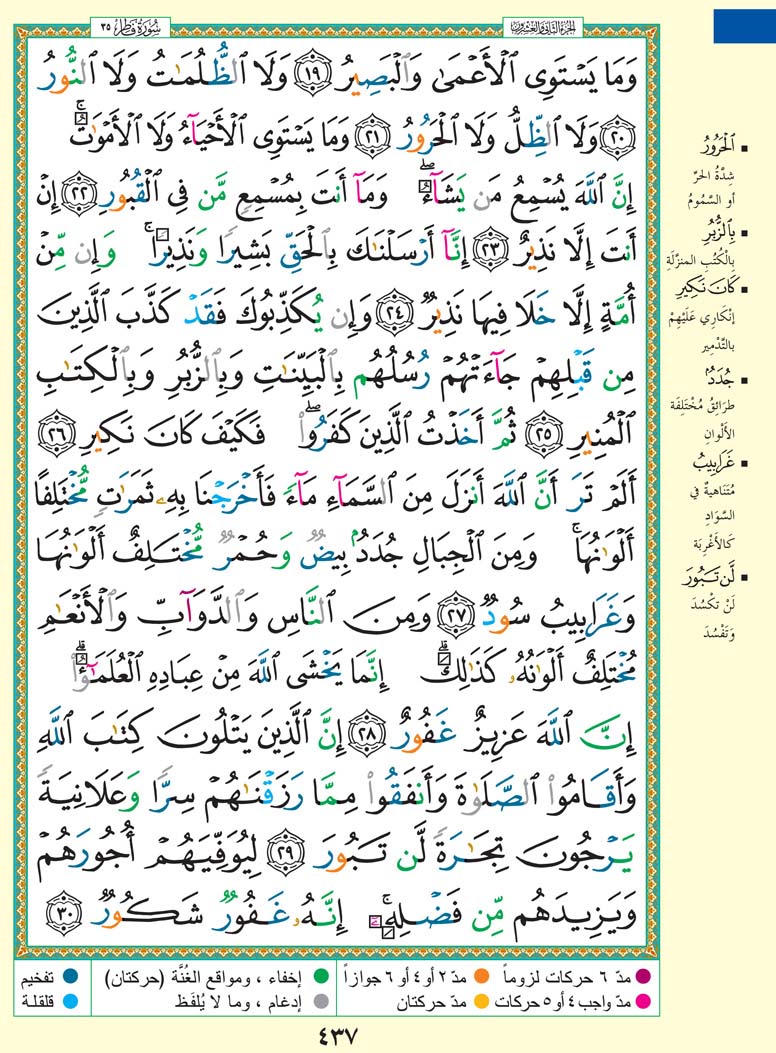 سُورَةُ فَاطِر ٣٥
الجزء الثاني والعشرون
وَمَا يَسْتَوِى ٱلْأَعْمَىٰ وَٱلْبَصِيرُ ١٩ وَلَا ٱلظُّلُمَٰتُ وَلَا ٱلنُّورُ
٢٠ وَلَا ٱلظِّلُّ وَلَا ٱلْحَرُورُ ٢١ وَمَا يَسْتَوِى ٱلْأَحْيَآءُ وَلَا ٱلْأَمْوَٰتُ ۚ
إِنَّ ٱللَّهَ يُسْمِعُ مَن يَشَآءُ ۖ وَمَآ أَنتَ بِمُسْمِعٍ مَّن فِى ٱلْقُبُورِ ٢٢ إِنْ
أَنتَ إِلَّا نَذِيرٌ ٢٣ إِنَّآ أَرْسَلْنَٰكَ بِٱلْحَقِّ بَشِيرًا وَنَذِيرًا ۚ وَإِن مِّنْ
أُمَّةٍ إِلَّا خَلَا فِيهَا نَذِيرٌ ٢٤ وَإِن يُكَذِّبُوكَ فَقَدْ كَذَّبَ ٱلَّذِينَ
مِن قَبْلِهِمْ جَآءَتْهُمْ رُسُلُهُم بِٱلْبَيِّنَٰتِ وَبِٱلزُّبُرِ وَبِٱلْكِتَٰبِ
ٱلْمُنِيرِ ٢٥ ثُمَّ أَخَذْتُ ٱلَّذِينَ كَفَرُوا۟ ۖ فَكَيْفَ كَانَ نَكِيرِ ٢٦
أَلَمْ تَرَ أَنَّ ٱللَّهَ أَنزَلَ مِنَ ٱلسَّمَآءِ مَآءً فَأَخْرَجْنَا بِهِۦ ثَمَرَٰتٍ مُّخْتَلِفًا
أَلْوَٰنُهَا ۚ وَمِنَ ٱلْجِبَالِ جُدَدٌۢ بِيضٌ وَحُمْرٌ مُّخْتَلِفٌ أَلْوَٰنُهَا
وَغَرَابِيبُ سُودٌ ٢٧ وَمِنَ ٱلنَّاسِ وَٱلدَّوَآبِّ وَٱلْأَنْعَٰمِ
مُخْتَلِفٌ أَلْوَٰنُهُۥ كَذَٰلِكَ ۗ إِنَّمَا يَخْشَى ٱللَّهَ مِنْ عِبَادِهِ ٱلْعُلَمَٰٓؤُا۟ ۗ
إِنَّ ٱللَّهَ عَزِيزٌ غَفُورٌ ٢٨ إِنَّ ٱلَّذِينَ يَتْلُونَ كِتَٰبَ ٱللَّهِ
وَأَقَامُوا۟ ٱلصَّلَوٰةَ وَأَنفَقُوا۟ مِمَّا رَزَقْنَٰهُمْ سِرًّا وَعَلَانِيَةً
يَرْجُونَ تِجَٰرَةً لَّن تَبُورَ ٢٩ لِيُوَفِّيَهُمْ أُجُورَهُمْ
وَيَزِيدَهُم مِّن فَضْلِهِۦٓ ۚ إِنَّهُۥ غَفُورٌ شَكُورٌ ٣٠
▪ ٱلْحَرُورُ
شِدَّةُ الحرِّ
أو السَّمُومُ
▪ بِٱلزُّبُرِ
بِالكُتُبِ المنزّلَةِ
▪ كَانَ نَكِيرِ
إنْكَارِي عَلَيْهِمْ
بالتَّدْمِيرِ
▪ جُدَدٌ
طَرائِقُ مُخْتَلِفَة
الأَلْوانِ
▪ غَرَابِيبُ
مُتَنَاهِيةٌ في
السَّوادِ
كالأَغْرِبَة
▪ لَّن تَبُورَ
لَنْ تكْسُدَ
وَتَفْسُدَ
مدّ ٦ حركات لزوماً
مدّ ٢ أو ٤ أو ٦ جوازاً
إخفاء ، ومواقع الغُنَّة (حركتان)
تفخيم
مدّ واجب ٤ أو ٥ حركات
مدّ حركتان
إدغام ، وما لا يُلفَظ
قلقلة
٤٣٧